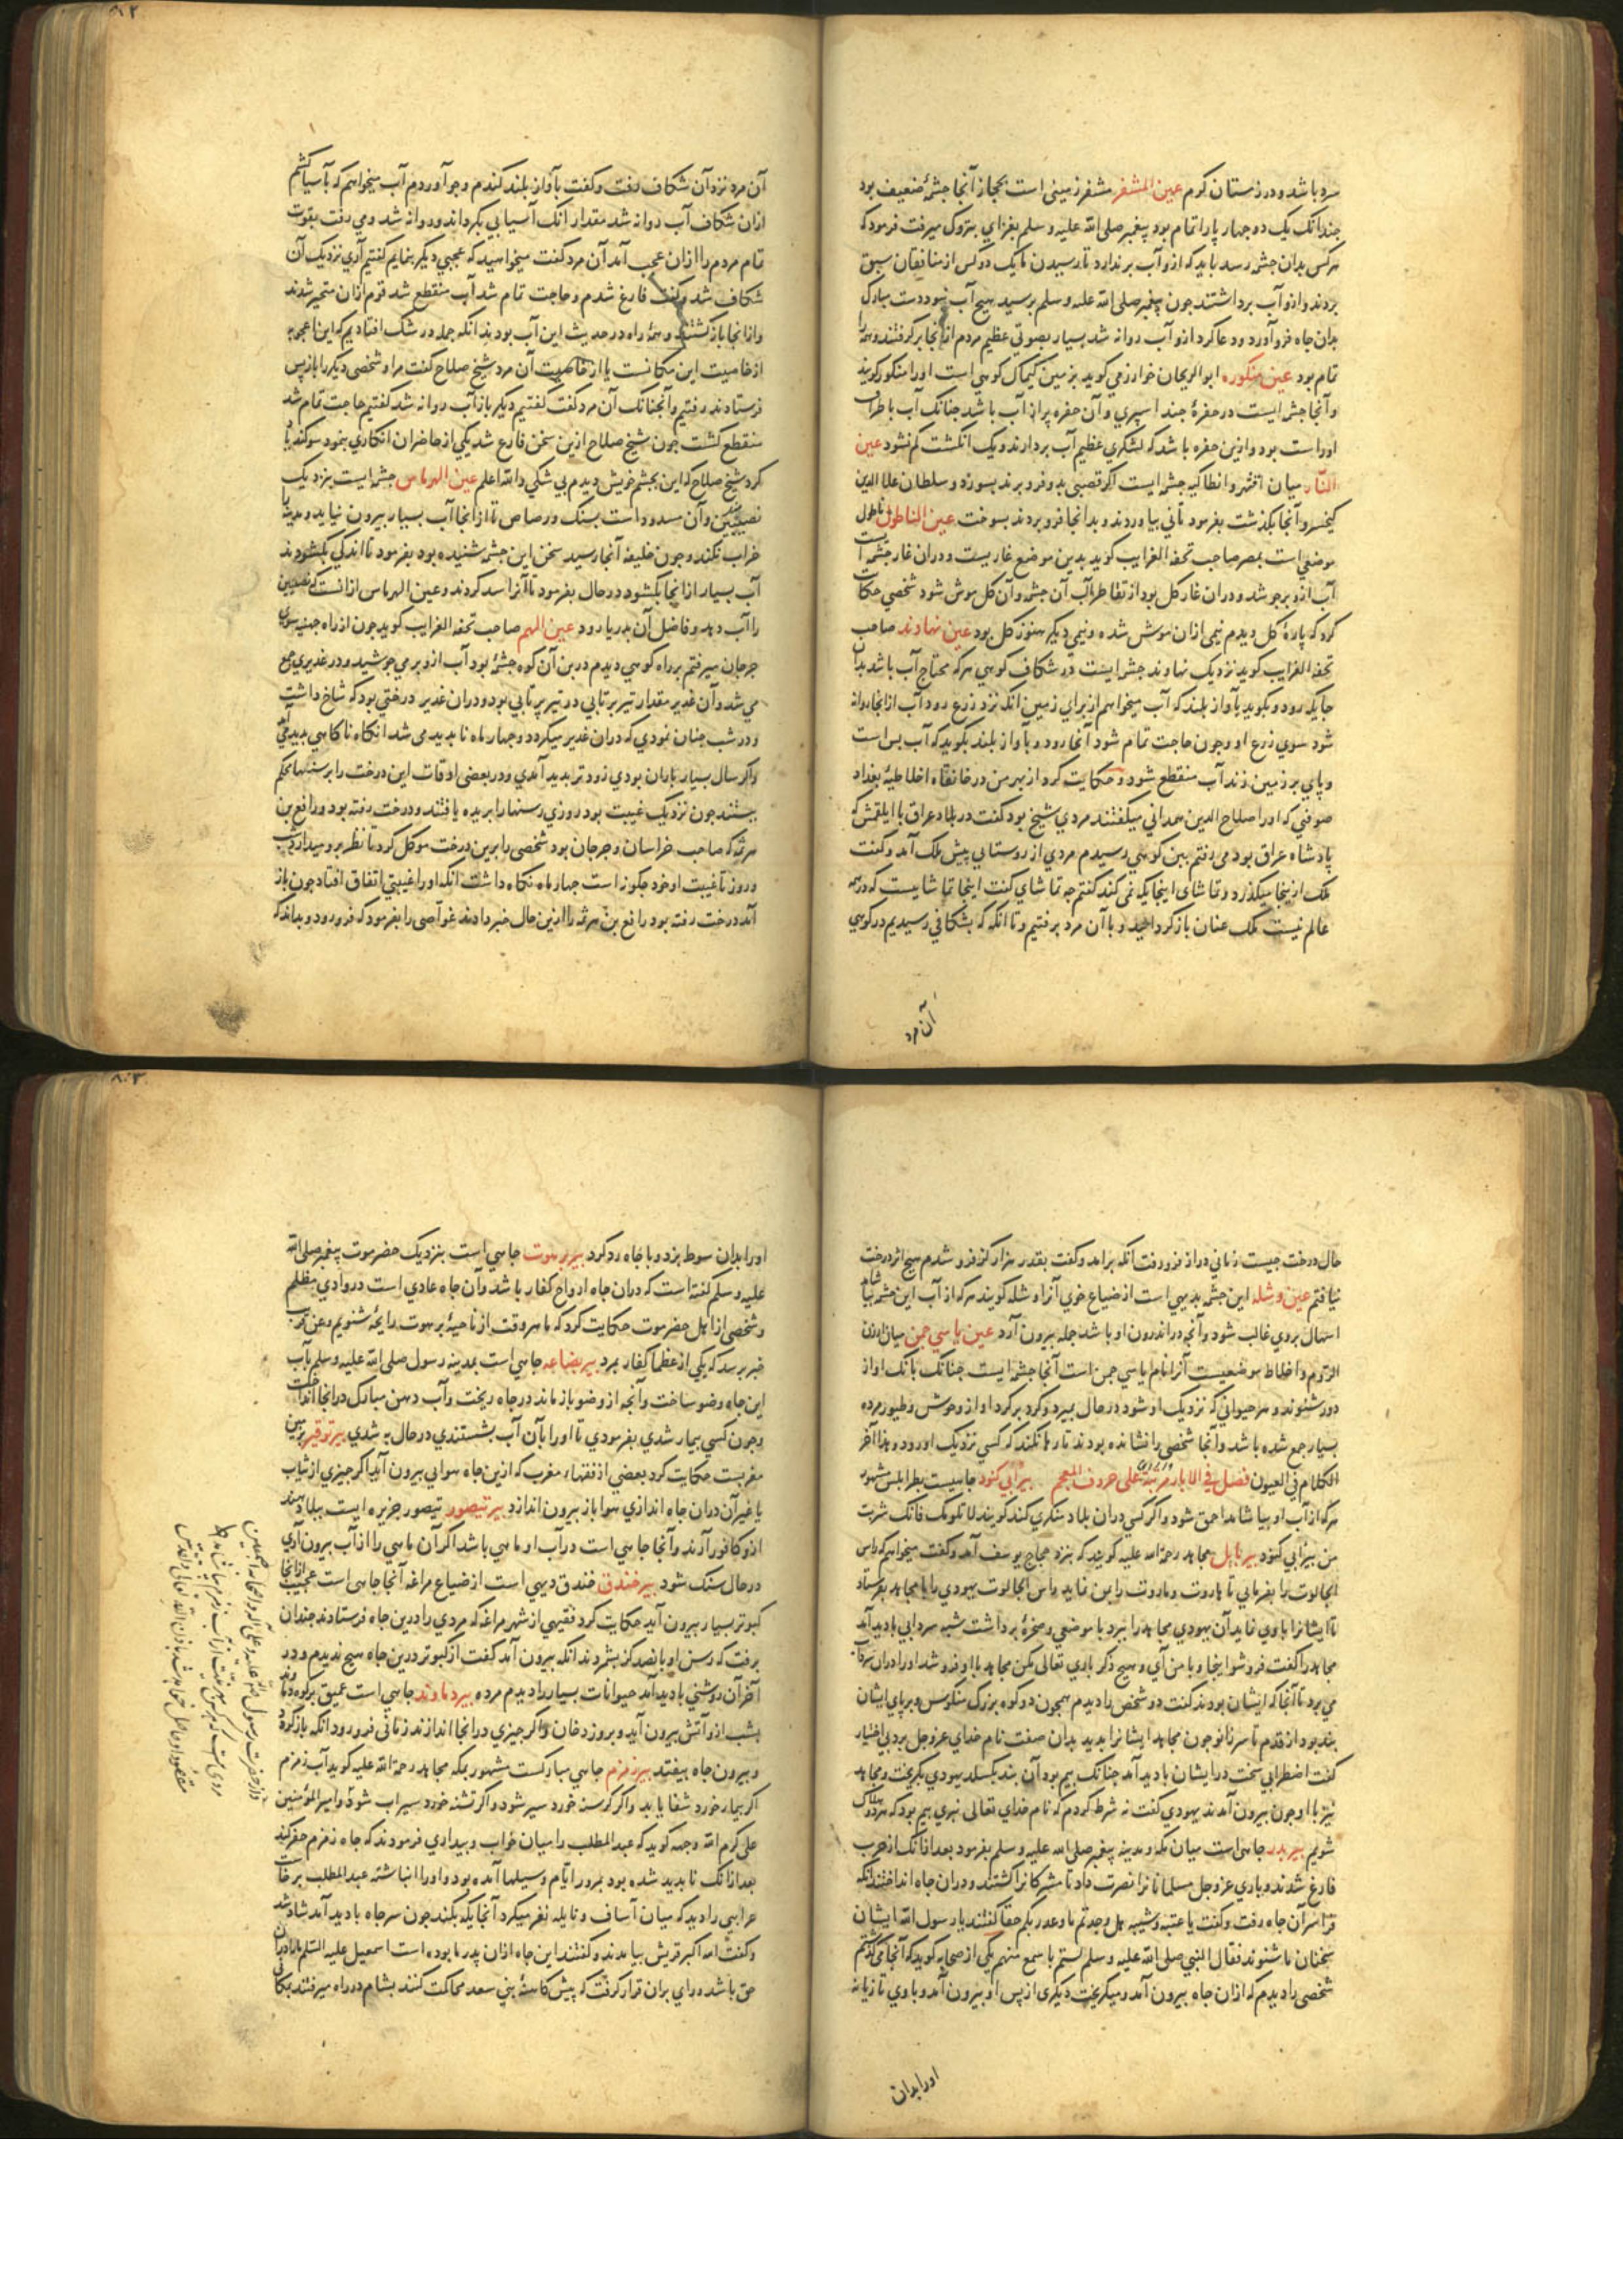 سرد باشد و در زمستان گرم عین المشفر مشفر زمینی است بحجاز آنجا چشمهٔ ضعیف بود
چندانک یک دو چهارپا را تمام بود پیغمبر صلی الله علیه و سلم بغزای بتبوک میرفت فرمود که
هرکس بدان چشمه رسد باید که ازو آب برندارد تا رسیدن ما یک دو کس از منافقان سبق
بردند و ازو آب برداشتند چون پیغمبر صلی الله علیه و سلم برسید هیچ آب نبود دست مبارک
بدان چاه فرو آورد و دعا کرد ازو آب روانه شد بسیار بصوتی عظیم مردم از آنجا برگرفتند و همه را
تمام بود عین منکوره ابو الریحان خوارزمی گوید بزمین کیماک کوهی است او را منکور گویند
و آنجا چشمه ایست در حفرهٔ چند اسپری و آن حفره پر از آب باشد چنانک آب باطراف
او راست بود و ازین حفره باشد که لشکری عظیم آب بردارند و یک انگشت کم نشود عین
النار میان اقشهر و انطاکیه چشمه ایست اگر قصبی بدو فرو برند بسوزد و سلطان علاء الدین
کیخسرو آنجا بگذشت بفرمود تا نی بیاوردند و بدانجا فرو بردند بسوخت عین الناطول ناطول
موضعی است بمصر صاحب تحفه الغرایب گوید بدین موضع غاریست و در آن غار چشمه ایست
آب ازو برجوشد و در آن غار گل بود از تقاطر آب آن چشمه و آن گل موش شود شخصی حکایت
کرد که پارهٔ گل دیدم نیمی ازان موش شده و نیمی دیگر هنوز گل بود عین نهاوند صاحب
تحفه الغرایب گوید نزدیک نهاوند چشمه ایست در شکاف کوهی هر که محتاج آب باشد بدان
جایگه رود و بگوید بآواز بلند که آب میخواهم از برای زمین آنگه نزد زرع رود آب از آنجا روانه
شود سوی زرع او و چون حاجت تمام شود آنجا رود و بآواز بلند بگوید که آب بس است
و پای بر زمین زند آب منقطع شود و حکایت کرد از بهر من در خانقاه اخلاطیهٔ بغداد
صوفیی که او را صلاح الدین همدانی میگفتند مردی شیخ بود گفت در بلاد عراق با ایلقمش که
پادشاه عراق بود می رفتم بین کوهی رسیدم مردی از روستایی پیش ملک آمد و گفت
ملک ازینجا میگذرد و تماشای اینجایگه نمی کند گفتم چه تماشای گفت اینجا تماشایست که در همه
عالم نیست ملک عنان باز گردانید و با آن مرد برفتیم و تا آنگه که بشکافی رسیدیم در کوهی
آن مرد
آن مرد نزد آن شکاف رفت و گفت بآواز بلند گندم و جو آوردم آب میخواهم که باسیا کشم
ازان شکاف آب روانه شد مقدار آنک آسیابی بگرداند و روانه شد و می رفت بقوت
تمام مردم را ازان عجب آمد آن مرد گفت میخواهید که عجبی دیگر بنمایم گفتیم آری نزدیک آن
شکاف شد و گفت فارغ شدم و حاجت تمام شد آب منقطع شد قوم ازان متحیر شدند
و از آنجا باز گشتند و همه راه در حدیث این آب بودند آنگه جمله در شک افتادیم که این اعجوبه
از خاصیت این مکانست یا از خاصیت آن مرد شیخ صلاح گفت مرا و شخصی دیگر را باز پس
فرستادند رفتیم و آنچنانک آن مرد گفت گفتیم دیگر باز آب روانه شد گفتیم حاجت تمام شد
منقطع گشت چون شیخ صلاح ازین سخن فارغ شد یکی از حاضران انکاری بنمود سوگند یاد
کرد شیخ صلاح که این بچشم خویش دیدم بی شکی و الله اعلم عین الهرماس چشمه ایست بنزدیک
نصیبین و آن مسدود است بسنگ و رصاص تا از آنجا آب بسیار بیرون نیاید و مدینه را
خراب نکند و چون خلیفه آنجا رسید سخن این چشمه شنیده بود بفرمود تا اندکی بگشودند
آب بسیار از آنجا بگشود در حال بفرمود تا آنرا سد کردند و عین الهرماس ازانست که نصیبین
را آب دهد و فاضل آن بدریا رود عین الهم صاحب تحفه الغرایب گوید چون از راه جهینه سوی
جرجان میرفتم بر راه کوهی دیدم در بن آن کوه چشمهٔ بود آب ازو برمی جوشید و در غدیری جمع
می شد و آن غدیر مقدار تیر پرتابی دو تیر پرتابی بود و در آن غدیر درختی بود که شاخ داشت
و در شب چنان نمودی که در آن غدیر میگردد و چهار ماه ناپدید می شد آنگاه ناگاهی پدید می آمد
و اگر سال بسیار باران بودی زودتر پدید آمدی و در بعضی اوقات این درخت را برسنهاء محکم
ببستند چون نزدیک غیبت بود روزی رسنها را بریده یافتند و درخت رفته بود و رافع بن
هرثمه که صاحب خراسان و جرجان بود شخصی را برین درخت موکل کرد تا نظر برو میدارد شب
و روز تا غیبت او خود چگونه است چهار ماه نگاه داشت آنگه او را غیبتی اتفاق افتاد چون باز
آمد درخت رفته بود رافع بن هرثمه را ازین حال خبر دادند غواصی را بفرمود که فرو رود و بداند که
حال درخت چیست زمانی دراز فرو رفت آنگه برآمد و گفت بقدر هزار گز فرو شدم هیچ اثر درخت
نیافتم عین وشله این چشمه بدیهی است از ضیاع خوی آنرا وشله گویند هر که از آب این چشمه بیاشامد
اسهال بروی غالب شود و آنچه در اندرون او باشد جمله بیرون آرد عین یاسی چمن میان ارزن
الروم و اخلاط موضعیست آنرا نام یاسی چمن است آنجا چشمه ایست چنانک بانک او از
دور شنوند و هر حیوانی که نزدیک او شود در حال بمیرد و گرد برگرد او از وحوش و طیور مرده
بسیار جمع شده باشد و آنجا شخصی را نشانده بودند تا رها نکند که کسی نزدیک او رود و هذا آخر
الکلام فی العیون فصل فی الابار مرتبة علی حروف المعجم بیر ابی کنود چاهیست بطرابلس مشهور
هر که از آب او بیاشامد احمق شود و اگر کسی در آن بلاد منکری کند گویند لا تلومک فانک شربت
من بیر ابی کنود بیر بابل مجاهد رحمة الله علیه گوید که بنزد حجاج یوسف آمد و گفت میخواهم که راس
الجالوت را بفرمایی تا هاروت و ماروت را بمن نماید راس الجالوت یهودی را با مجاهد بفرستاد
تا ایشانرا باوی نماید آن یهودی مجاهد را ببرد با موضعی و صخرهٔ برداشت شبه سردابی بادید آمد
مجاهد را گفت فرو شو اینجا و با من آی و هیچ ذکر باری تعالی مکن مجاهد با او فرو شد او را در آن سرداب
می برد تا آنجا که ایشان بودند گفت دو شخص را دیدم همچون دو کوه بزرگ منکوس و بر پای ایشان
بند بود از قدم تا سر زانو چون مجاهد ایشانرا بدید بدان صفت نام خدای عز و جل برد بی اختیار
گفت اضطرابی سخت در ایشان بادید آمد چنانک بیم بود آن بند بگسلد یهودی بگریخت و مجاهد
نیز با او چون بیرون آمدند یهودی گفت نه شرط کردم که نام خدای تعالی نبری بیم بود که هر دو هلاک
شویم بیر بدر چاهی است میان مکه و مدینه پیغمبر صلی الله علیه و سلم بفرمود بعد افانک از حرب
فارغ شدند و باری عز و جل مسلمانانرا نصرت داد تا مشرکانرا کشتند و در آن چاه انداختند آنگه
فرا سر آن چاه رفت و گفت یا عتبه و شیبه هل وجدتم ما وعد ربکم حقا گفتند یا رسول الله ایشان
سخنان ما شنوند فقال النبی صلی الله علیه و سلم لستم باسمع منهم یکی از صحابه گوید که آنجا می گذشتم
شخصی را دیدم که ازان چاه بیرون آمد و میگریخت دیگری از پس او بیرون آمد و باوی تازیانه
او را بدان
او را بدان سوط بزد و با چاه رد کرد بیر برهوت چاهی است بنزدیک حضرموت پیغمبر صلی الله
علیه و سلم گفته است که در آن چاه ارواح کفار باشد و آن چاه عادی است در وادی مظلم
و شخصی از اهل حضرموت حکایت کرد که ما هر وقت از ناحیهٔ برهوت رایحهٔ شنویم و عن قریب
خبر برسد که یکی از عظماء کفار بمرد بیر بضاعه چاهی است بمدینه رسول صلی الله علیه و سلم بآب
این چاه وضو ساخت و آنچه از وضو باز ماند در چاه ریخت و آب دهن مبارک در آنجا انداخت
و چون کسی بیمار شدی بفرمودی تا او را بآن آب بشستندی در حال به شدی بیر توقیر بزمین
مغربست حکایت کرد بعضی از فقهاء مغرب که ازین چاه هوایی بیرون آید اگر چیزی از ثیاب
یا غیر آن در آن چاه اندازی هوا باز بیرون اندازد بیر تیصور تیصور جزیره ایست ببلاد هند
ازو کافور آرند و آنجا چاهی است در آب او ماهی باشد اگر آن ماهی را از آب بیرون آری
در حال سنگ شود بیر خندق خندق دیهی است از ضیاع مراغه آنجا چاهی است عجیب از آنجا
کبوتر بسیار بیرون آید حکایت کرد فقیهی از شهر مراغه که مردی را درین چاه فرستادند چندان
برفت که رسن او پانصد گز بشمردند آنگه بیرون آمد گفت از کبوتر درین چاه هیچ ندیدم و در
آخر آن روشنی بادید آمد حیوانات بسیار را دیدم مرده بیر دماوند چاهی است عمیق بر کوه دماوند
بشب ازو آتش بیرون آید و بروز دخان و اگر چیزی در آنجا اندازند زمانی فرو رود آنگه باز گردد
و بیرون چاه بیفتد بیر زمزم چاهی مبارکست مشهور بمکه مجاهد رحمة الله علیه گوید آب زمزم
اگر بیمار خورد شفا یابد و اگر گرسنه خورد سیر شود و اگر تشنه خورد سیراب شود و امیر المؤمنین
علی کرم الله وجهه گوید که عبد المطلب را میان خواب و بیداری فرمودند که چاه زمزم حفر کند
بعد ازانک ناپدید شده بود بمرور ایام و سیلها آمده بود و او را انباشته عبد المطلب برخاست
غرابی را دید که میان اساف و نایله نقر میکرد آنجایگه بکند چون سر چاه بادید آمد شاد شد
و گفت الله اکبر قریش بیامدند و گفتند این چاه ازان پدر ما بوده است اسمعیل علیه السلم ما را در آن
حق باشد و رای بران قرار گرفت که پیش کاهنهٔ بنی سعد محاکمت کنند بشام در راه میرفتند بمکانی
از حضرت رسول الله صلی الله علیه و علی آله و اصحابه اجمعین